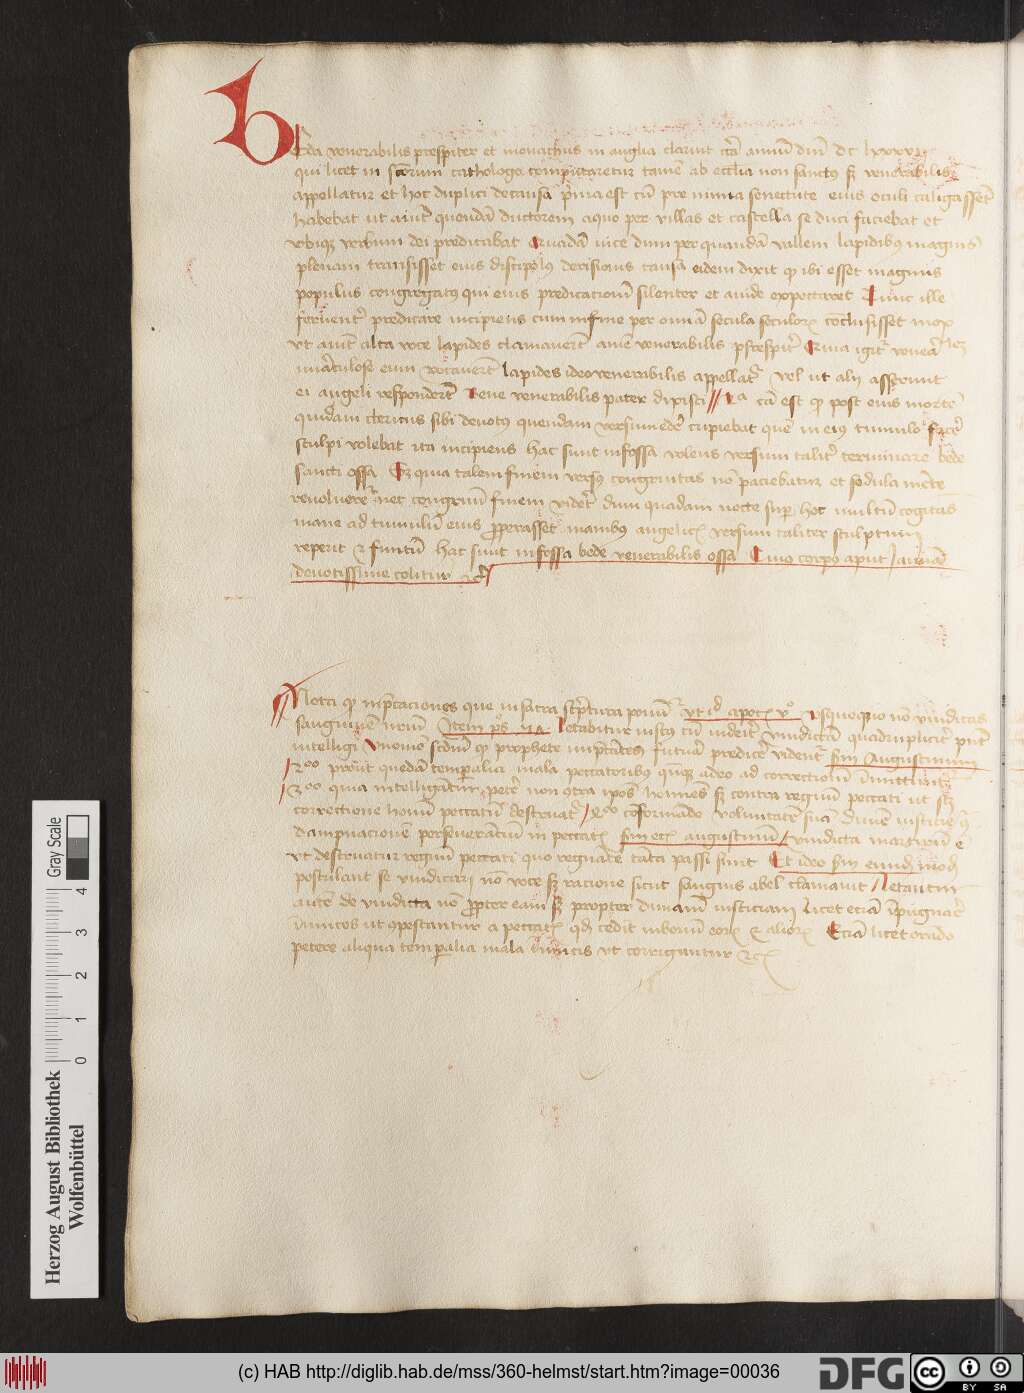 BEda venerabilis prespiter et monachus in anglia claruit circa annum dni dc lxxxvi
qui licet in sctorum cathologo computaretur tamen ab ecclia non sanctus sz venerabilis
appellatur et hoc duplici de causa prima est cum pre nimia senectute eius oculi caligassent
habebat ut aiunt quendam ductorem a quo per villas et castella se duci faciebat et
ubique verbum dei predicabat Quadam vice dum per quandam vallem lapidibus magnis
plenam transisset eius discipulus derisionis causa eidem dixit qp ibi esset magnus
populus congregatus qui eius predicationem silenter et auide expectaret Tunc ille
feruenter predicare incipiens cum in fine per omnia secula seculorum conclusisset mox
ut aiunt alta voce lapides clamauerunt amen venerabilis prespiter Quia igitur
miraculose eum vocauerunt lapides ideo venerabilis appellatur vel ut alij asserunt
ei angeli responderunt Bene venerabilis pater dixisti // 2a causa est qp post eius mortem
quidam clericus sibi deuotus quendam versum edere cupiebat quem in eius tumulo facere
sculpi volebat ita incipiens hac sunt in fossa volens versum taliter terminare bede
sancti ossa Sz quia talem finem versus congruitas non paciebatur et sedula mente
revolueret nec congruum finem videret dum quadam nocte super hoc multum cogitans
mane ad tumulum eius properasset manibus angelicis versum taliter sculptum
reperit et finitum hac sunt in fossa bede venerabilis ossa Cuius corpus aput Januam
deuotissime colitur etc
Nota qp inprecaciones que in sacra scriptura ponuntur ut id apoc vo Usquequo non vindicas
sanguinem nostrum Item ps Letabitur iustus cum viderit vindictam quadrupliciter possunt
intelligi Uno modo secundum qp prophete inprecantes futuram predicere videntur scdm Augustinum
2o prout quedam temporalia mala peccatoribus quandoque a deo ad correctionem immittuntur
3o quia intelligantur petere non contra ipsos homines sz contra regnum peccati ut scz
correctione hominum peccatum destruatur 4o conformando voluntatem suam diuine iusticie
dampnacionem perseuerancium in peccatis scdm etc augustinum vindicta martirum est
ut destruatur regnum peccati quo regnante tanta passi sunt Et ideo scdm eundem modum
postulant se vindicari non voce sz racione sicut sanguis abel clamauit Letantur
autem de vindicta non propter eam sz propter diuinam iusticiam Licet eciam inpugnare
inimicos ut conpescantur a peccatis quod cedit in bonum eorum et aliorum Eciam licet orando
petere aliqua temporalia mala inimicis ut corrigantur etc
Gray Scale
4 3 2 1 0
Herzog August Bibliothek
Wolfenbüttel
(c) HAB http://diglib.hab.de/mss/360-helmst/start.htm?image=00036
DFG
cc BY SA